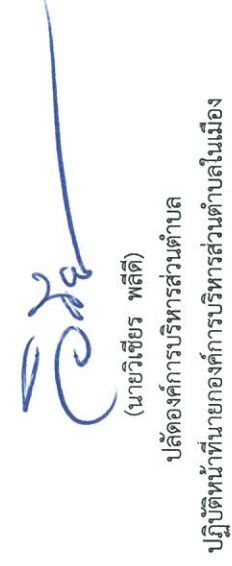 (นายวิเชียร พลีดี)
ปลัดองค์การบริหารส่วนตำบล
ปฏิบัติหน้าที่นายกองค์การบริหารส่วนตำบลในเมือง